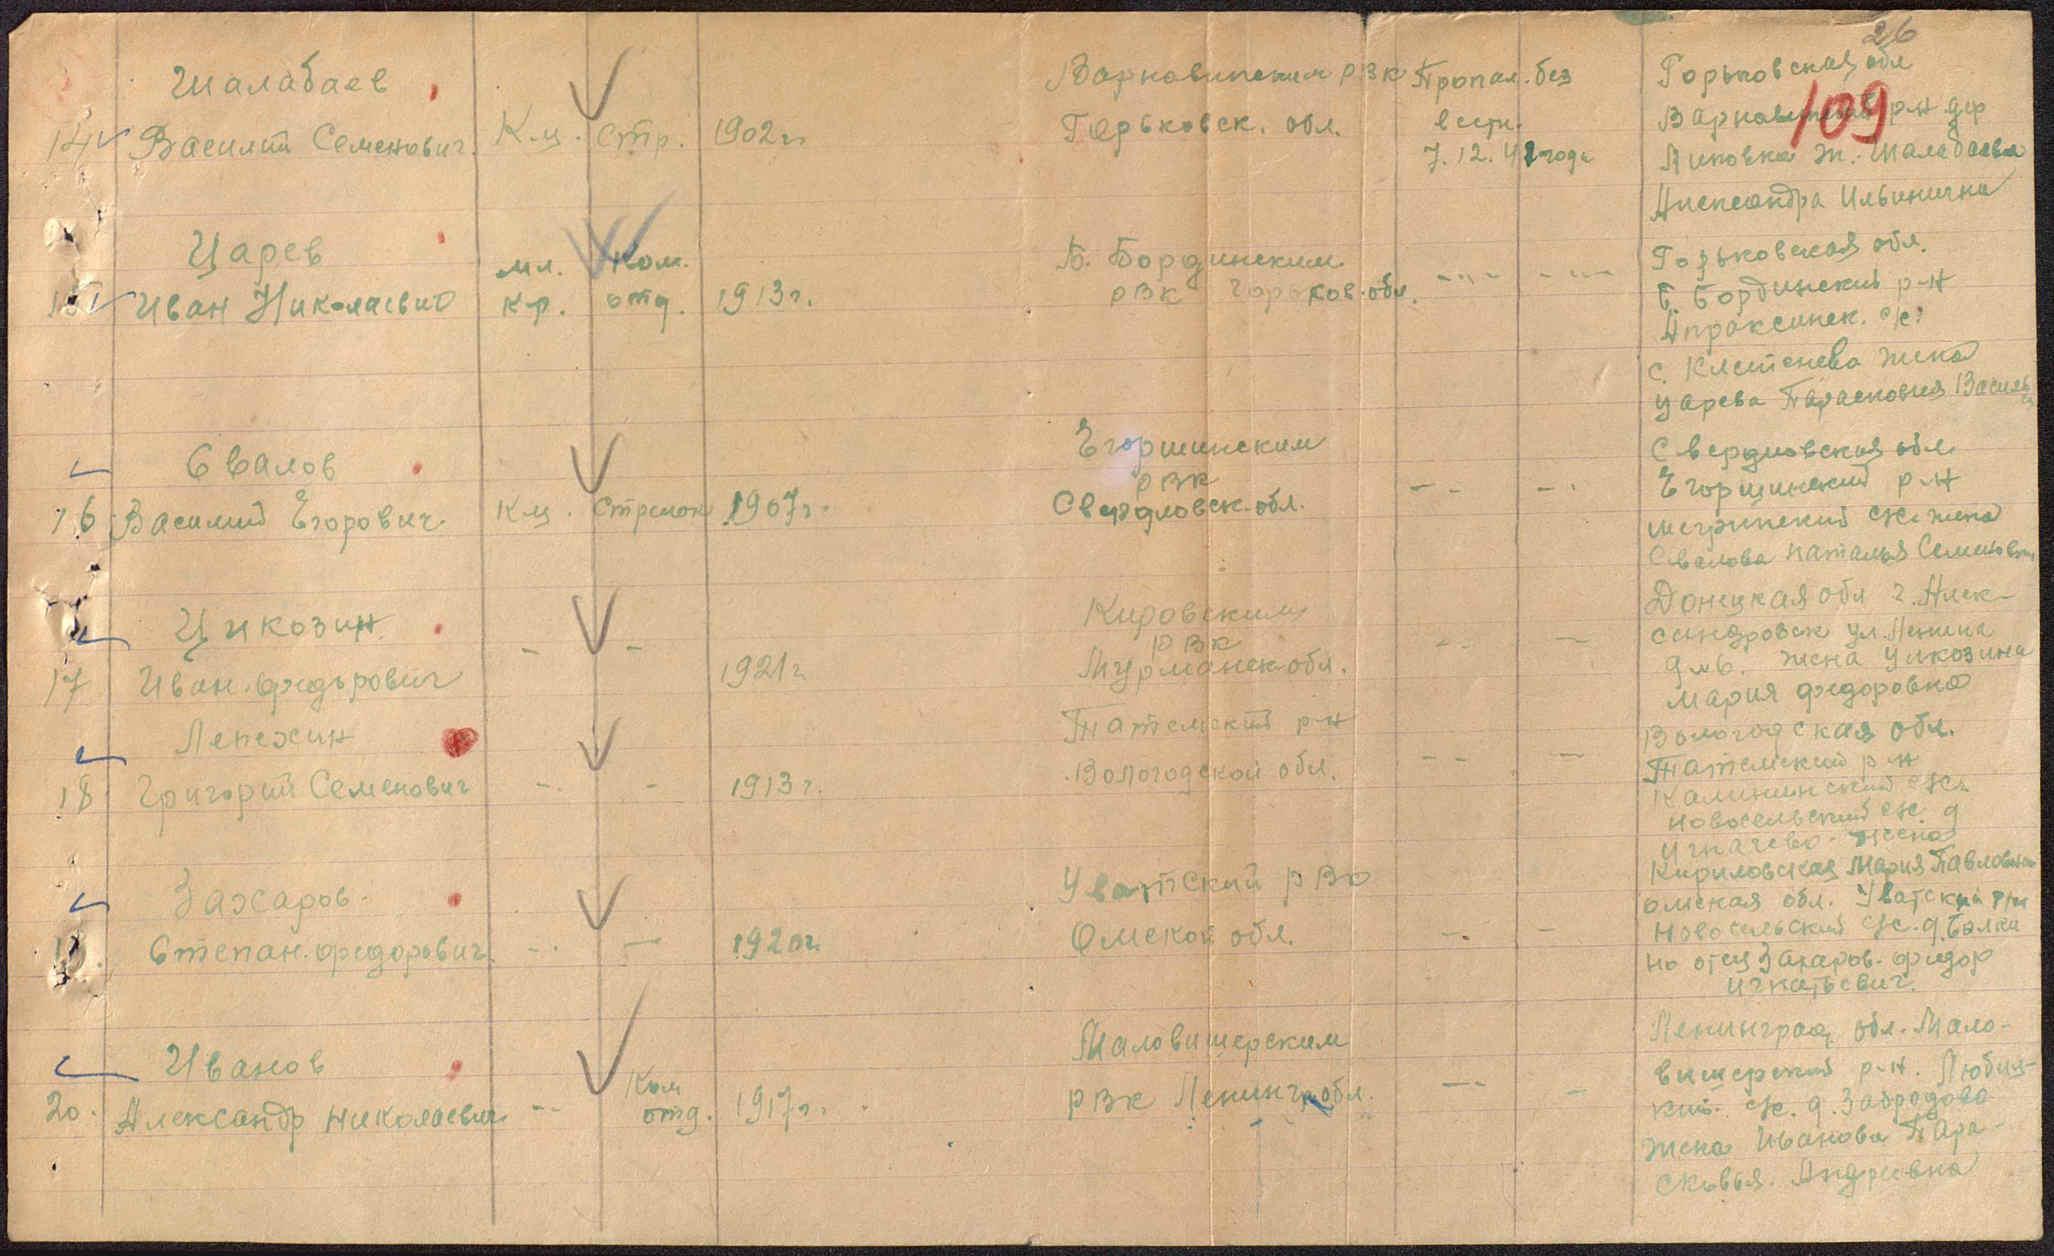 26
109
Шалабаев
14 Василий Семенович Кц. стр. 1902г.
Варнавинским РВК
Горьковск. обл.
Пропал без
вести
7.12.41 года
Горьковская обл
Варнавинский р-н дер
Липовка ж. Шалабаева
Александра Ильинична
Царев
15 Иван Николаевич мл. кр. ком. отд. 1913г.
Б. Бординским
РВК Горьков. обл.
-"- -"-
Горьковская обл.
Б Бординский р-н
Апраксинск. с/с
с. Клетенева жена
Царева Парасковия
Свалов
16 Василий Егорович Кц. Стрелок 1907г.
Егоршинским
РВК
Свердловск. обл.
-"- -"-
Свердловская обл
Егоршинский р-н
с/с жена
Свалова Наталья
Цикозин
17 Иван Федорович - - 1921г
Кировским
РВК
Мурманск обл.
-"- -
Донецкая обл г. Алек-
сандровск ул. Ленина
жена Цикозина
Мария Федоровна
Лепехин
18 Григорий Семенович - - 1913г.
Тотемский р-н
Вологодской обл.
-"- -
Вологодская обл.
Тотемский р-н
Калининский с/с
Новосельский с/с д
Игначево жена
Кириловская Мария Павловна
Захаров
Степан Федорович - - 1920г.
Уватский РВК
Омской обл.
-"- -
Омская обл. Уватский р/н
Новосельский с/с д. Белки
но отец Захаров Федор
Игнатьевич.
Иванов
20. Александр Николаевич -"- Ком отд. 1917г.
Маловишерским
РВК Ленингр обл.
-"- -
Ленинград. обл. Мало-
вишерский р-н. Любит-
кий с/с. д. Забродова
жена Иванова Пара-
сковья Андреевна